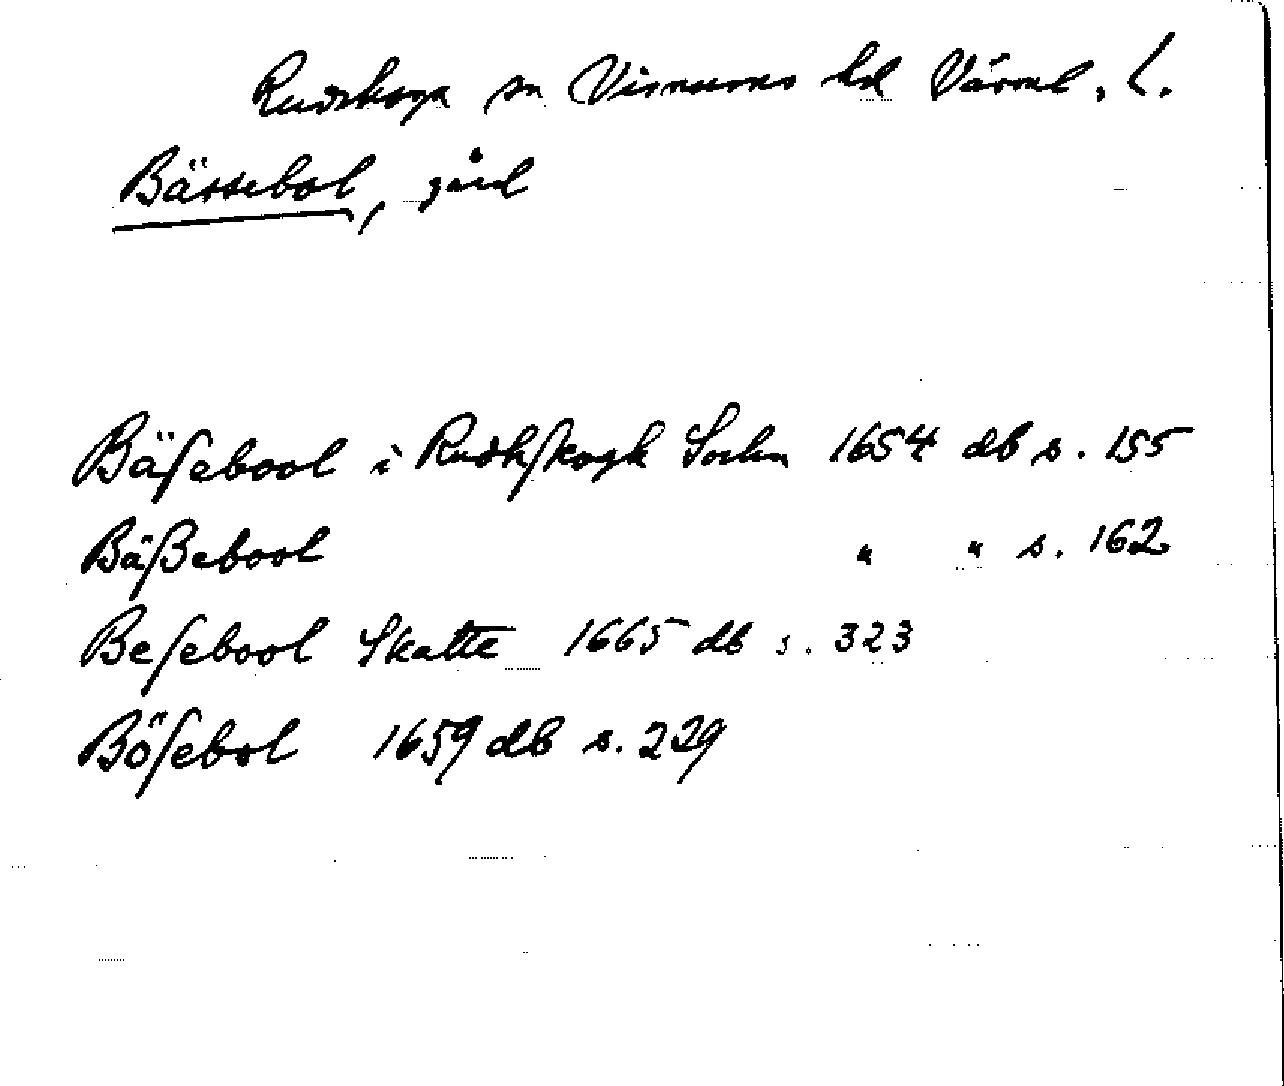 Rudskoga sn Visnums hd Värml. L.
Bässebol, gård
Bäſebool i Rudhſkogh Sochn 1654 db s. 155
Bäßebool " " s. 162
Beſebool Skatte 1665 db s. 323
Böſebol 1659 db s. 229